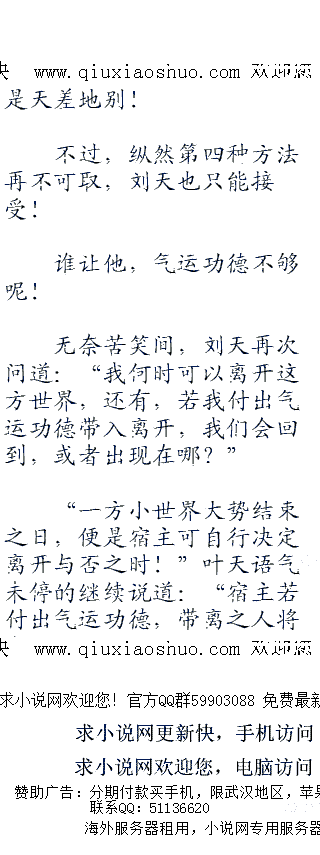 快 www.qiuxiaoshuo.com 欢迎您
是天差地别！
不过，纵然第四种方法
再不可取，刘天也只能接
受！
谁让他，气运功德不够
呢！
无奈苦笑间，刘天再次
问道：“我何时可以离开这
方世界，还有，若我付出气
运功德带入离开，我们会回
到，或者出现在哪？”
“一方小世界大势结束
之日，便是宿主可自行决定
离开与否之时！”叶天语气
未停的继续说道：“宿主若
付出气运功德，带离之人将
快 www.qiuxiaoshuo.com 欢迎您
求小说网欢迎您！官方QQ群59903088 免费最新
求小说网更新快，手机访问
求小说网欢迎您，电脑访问
赞助广告：分期付款买手机，限武汉地区，苹果
联系QQ：51136620
海外服务器租用，小说网专用服务器